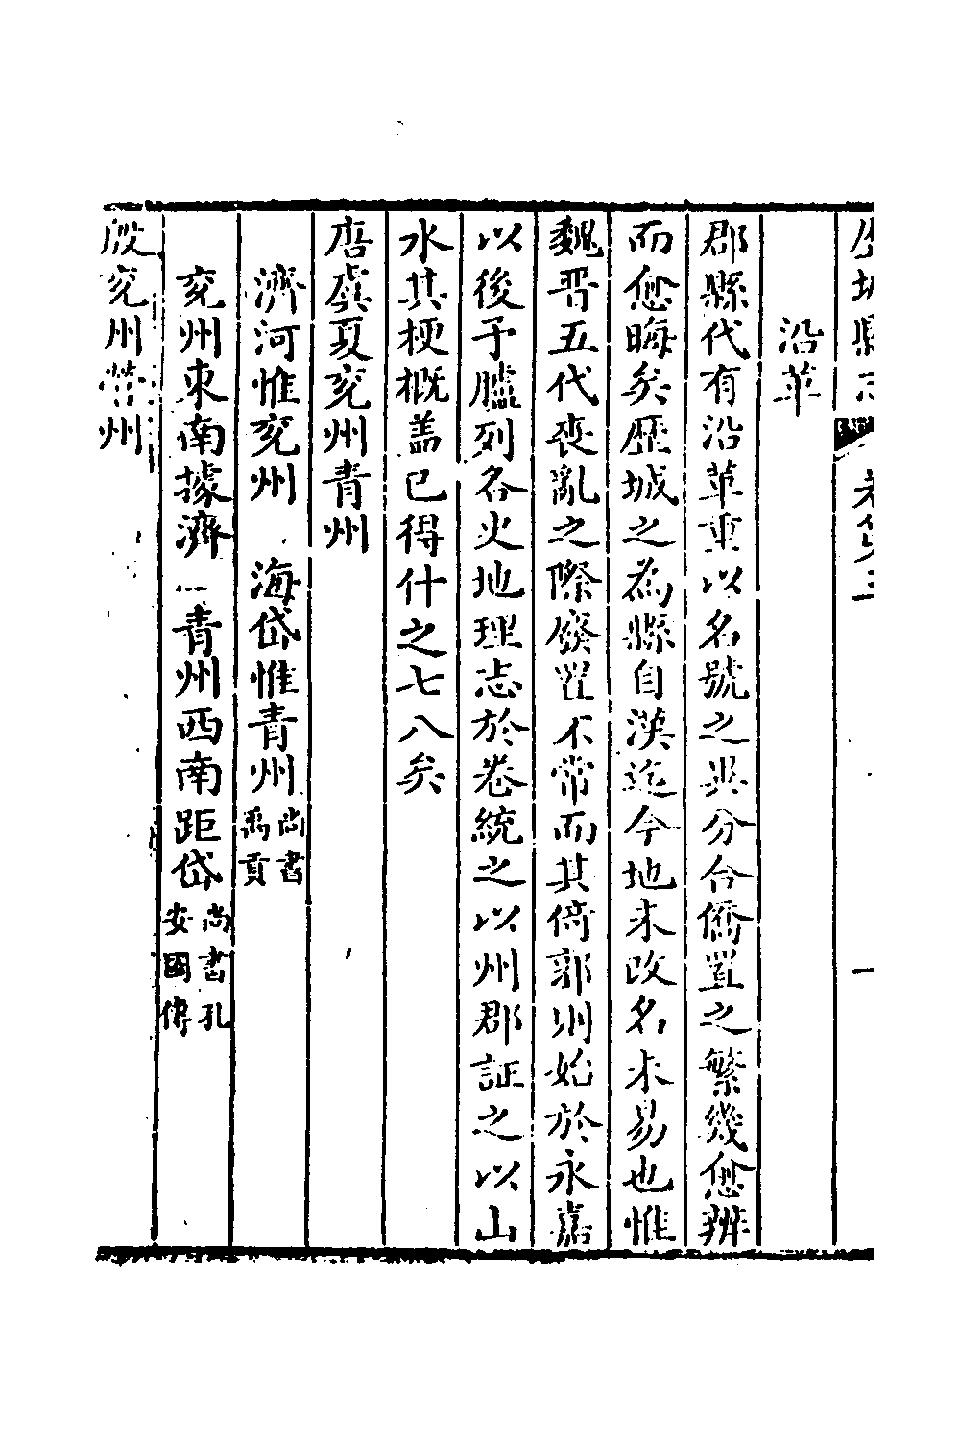 沿革
郡縣代有沿革重以名號之異分合僑置之繁幾愈辨
而愈晦矣歷城之為縣自漢迄今地未改名未易也惟
魏晉五代喪亂之際廢置不常而其倚郭則始於永嘉
以後予臚列各史地理志於卷統之以州郡証之以山
水其梗概盖已得什之七八矣
唐虞夏兖州青州
濟河惟兖州 海岱惟青州 尚書禹貢
兖州東南據濟 青州西南距岱 尚書孔安國傳
殷兖州營州